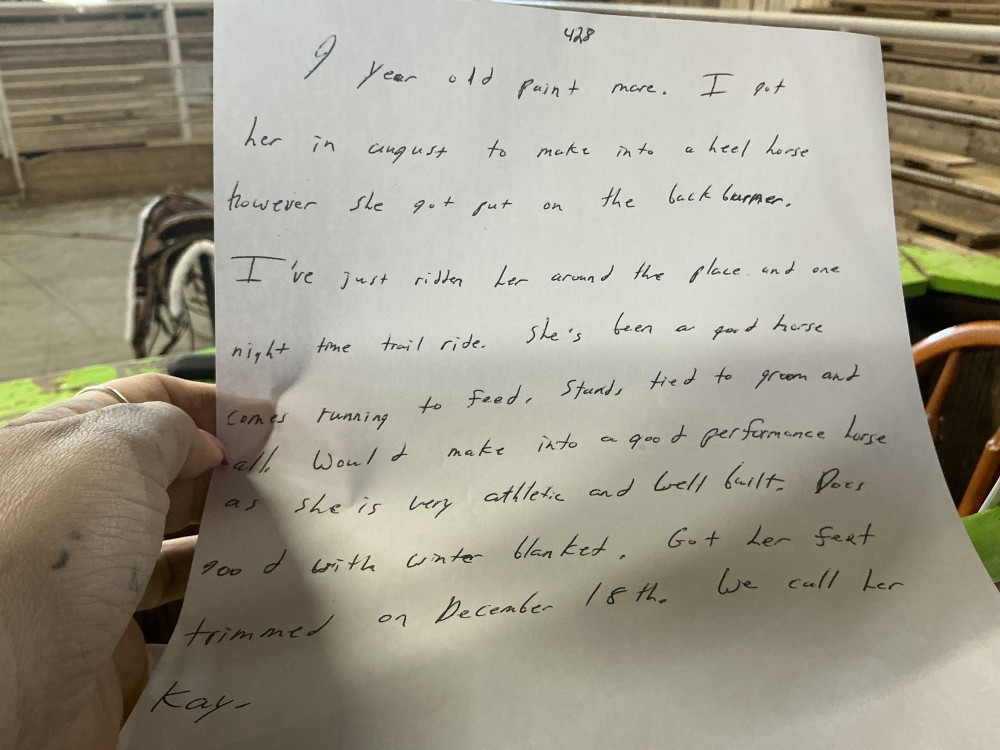 428
9 year old paint mare. I got
her in august to make into a heel horse
however she got put on the back burner.
I've just ridden her around the place and one
night time trail ride. She's been a good horse
comes running to feed. Stands tied to groom and
all. Would make into a good performance horse
as she is very athletic and well built. Does
good with winter blanket. Got her feet
trimmed on December 18th. We call her
Kay.